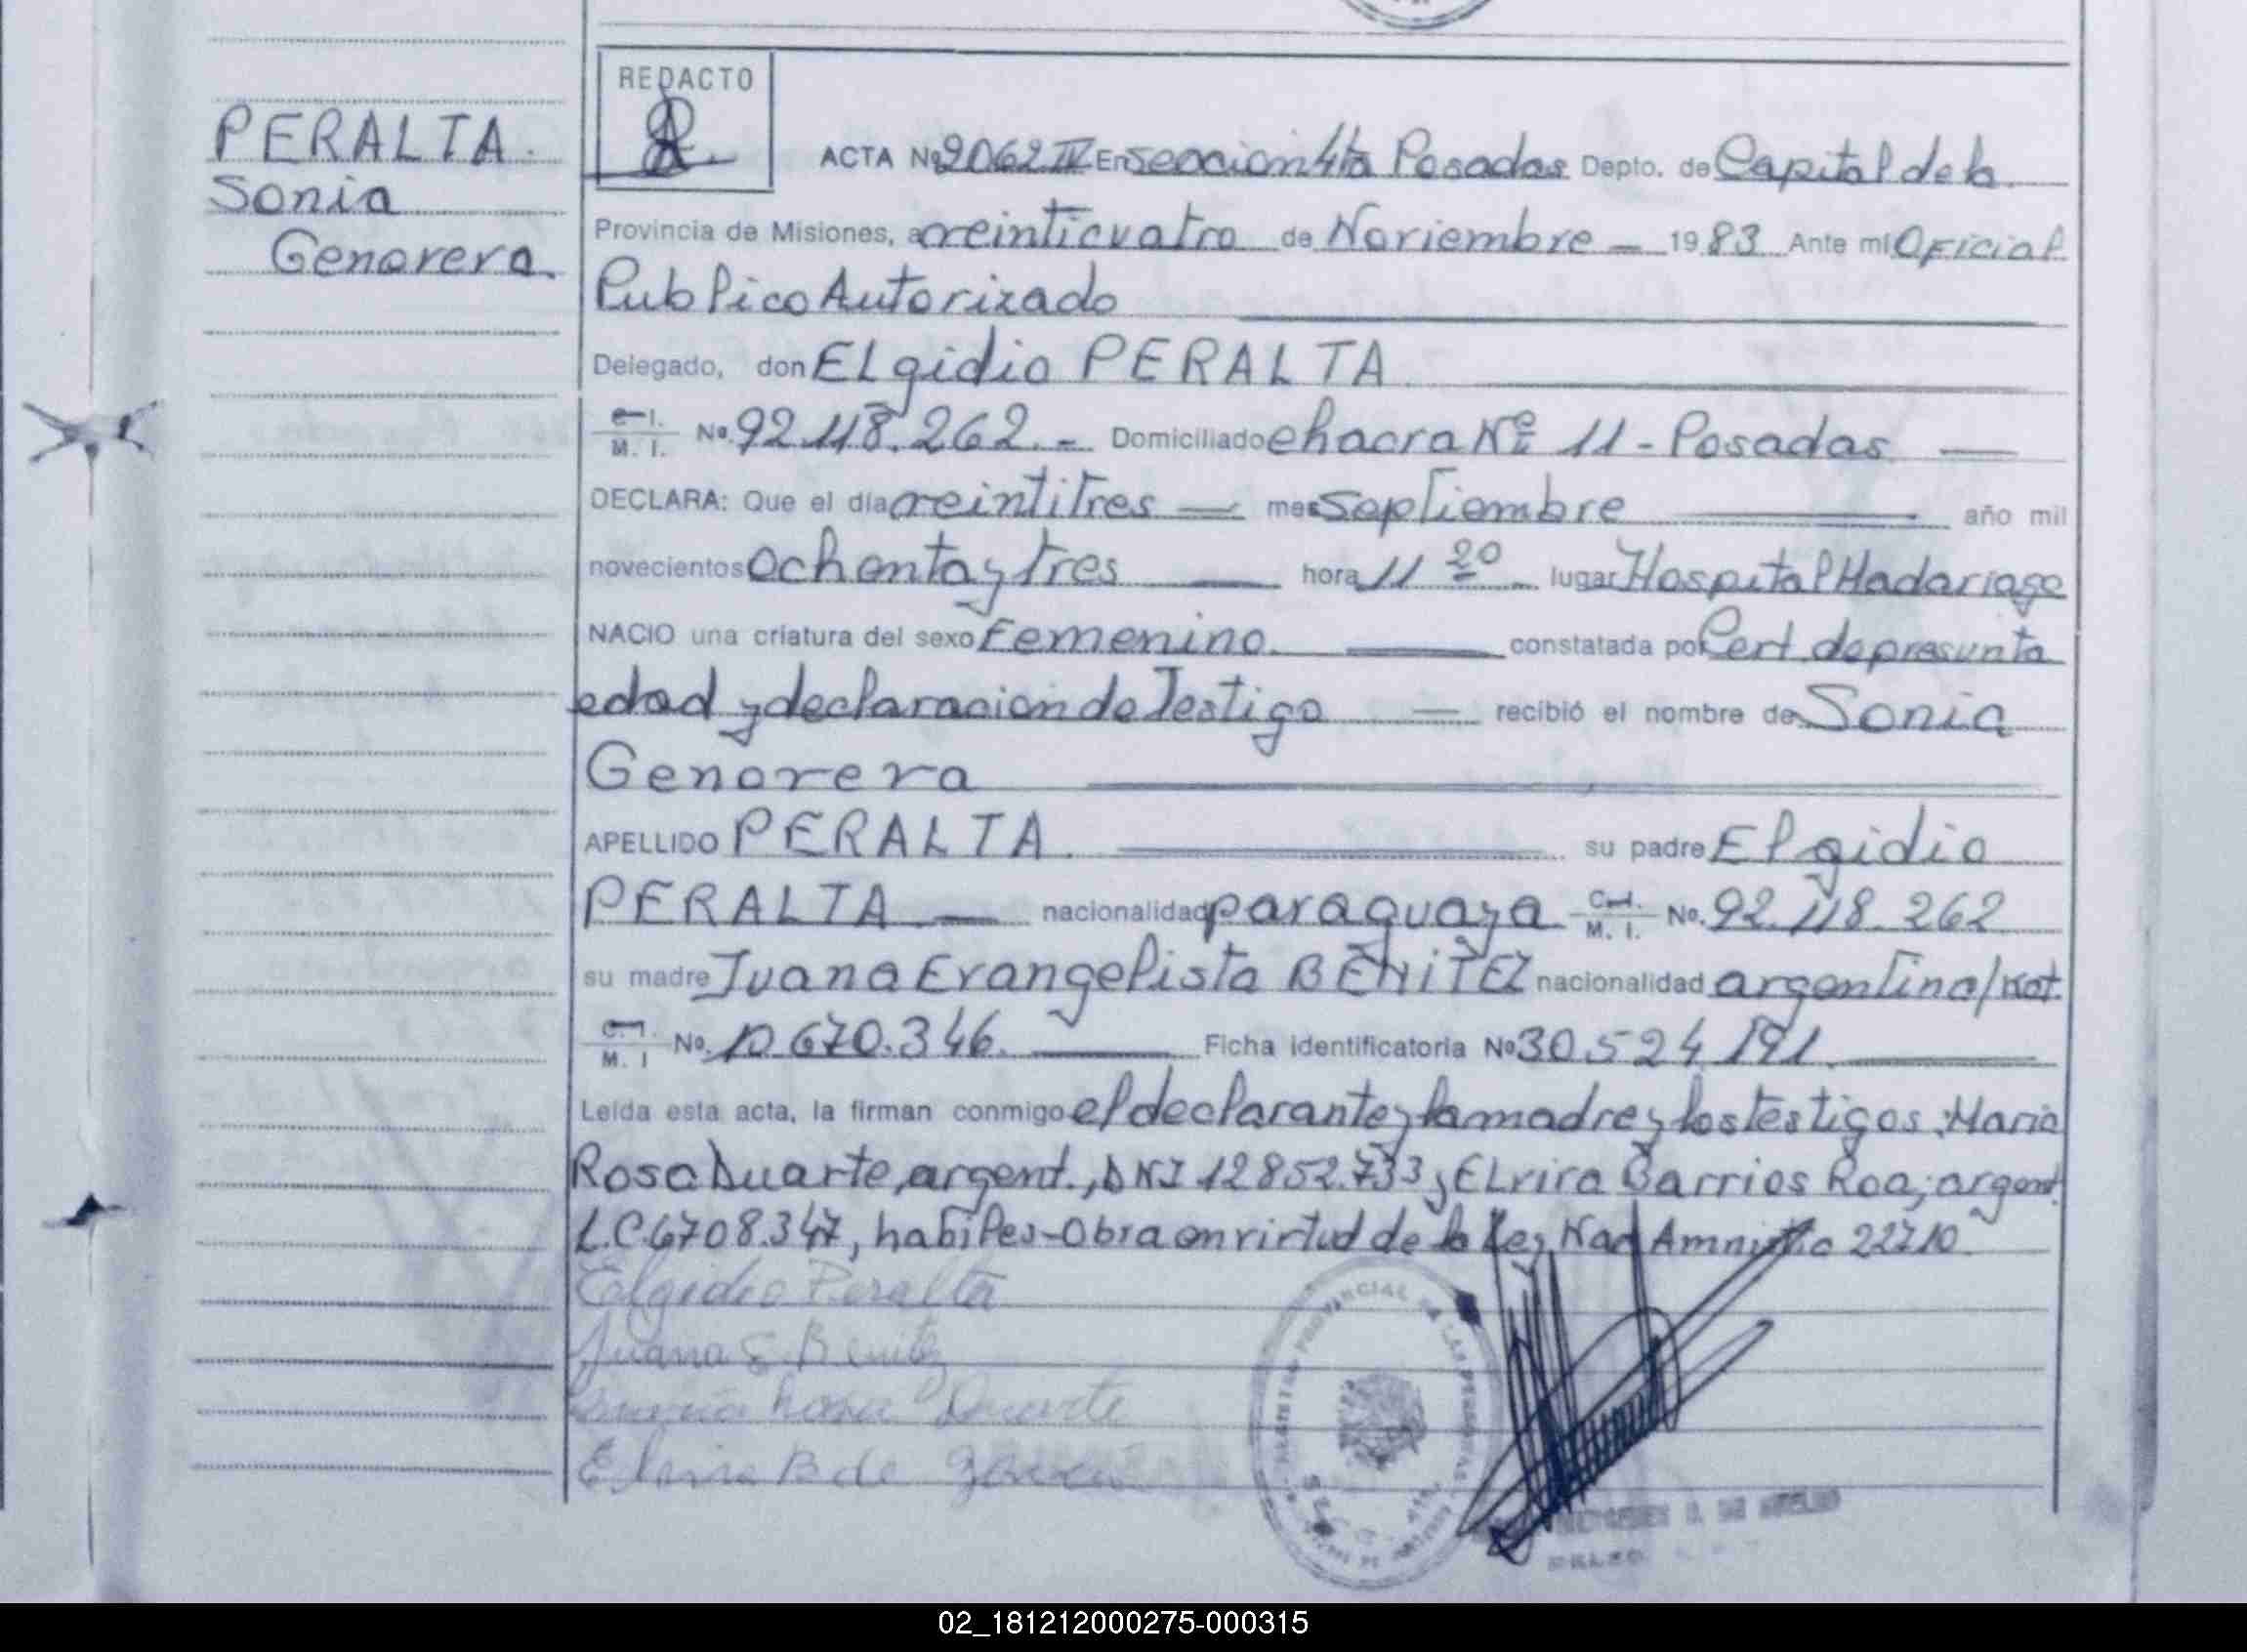 REDACTO
PERALTA.
Sonia
Genoveva.
ACTA Nº 2062 IV En seccion 4ta Posadas Depto. de Capital de la
Provincia de Misiones, a veinticuatro de Noviembre — 1983 Ante mí Oficial
Publico Autorizado
Delegado, don ELgidio PERALTA
C. I. M. I. Nº. 92.118.262.- Domiciliado chacra Nº 11 - Posadas —
DECLARA: Que el día veintitres — mes septiembre — año mil
novecientos ochenta y tres — hora 11 20 lugar Hospital Madariaga
NACIO una criatura del sexo Femenino. — constatada por Cert. de presunta
edad y declaracion de Testigo — recibió el nombre de Sonia
Genoveva
APELLIDO PERALTA. su padre Elgidio
PERALTA. — nacionalidad paraguaya C. I. M. I. Nº. 92.118.262
su madre Juana Evangelista BENiTEZ nacionalidad argentina/Nat.
C. I. M. I Nº. 10.670.346. — Ficha identificatoria Nº 30.524.191.
Leída esta acta, la firman conmigo el declarante y la madre y los testigos: Maria
Rosa Duarte, argent., DNI 12852.733 y ELvira Barrios Roa, argent.
L.C.6708.347, habiles-Obra en virtud de la Ley Nac Amnistia 22710
Elgidio Peralta
Juana E. Benitez
Maria Rosa Duarte
Elvira B de
PROVINCIAL DE LAS PERSONAS
02_181212000275-000315